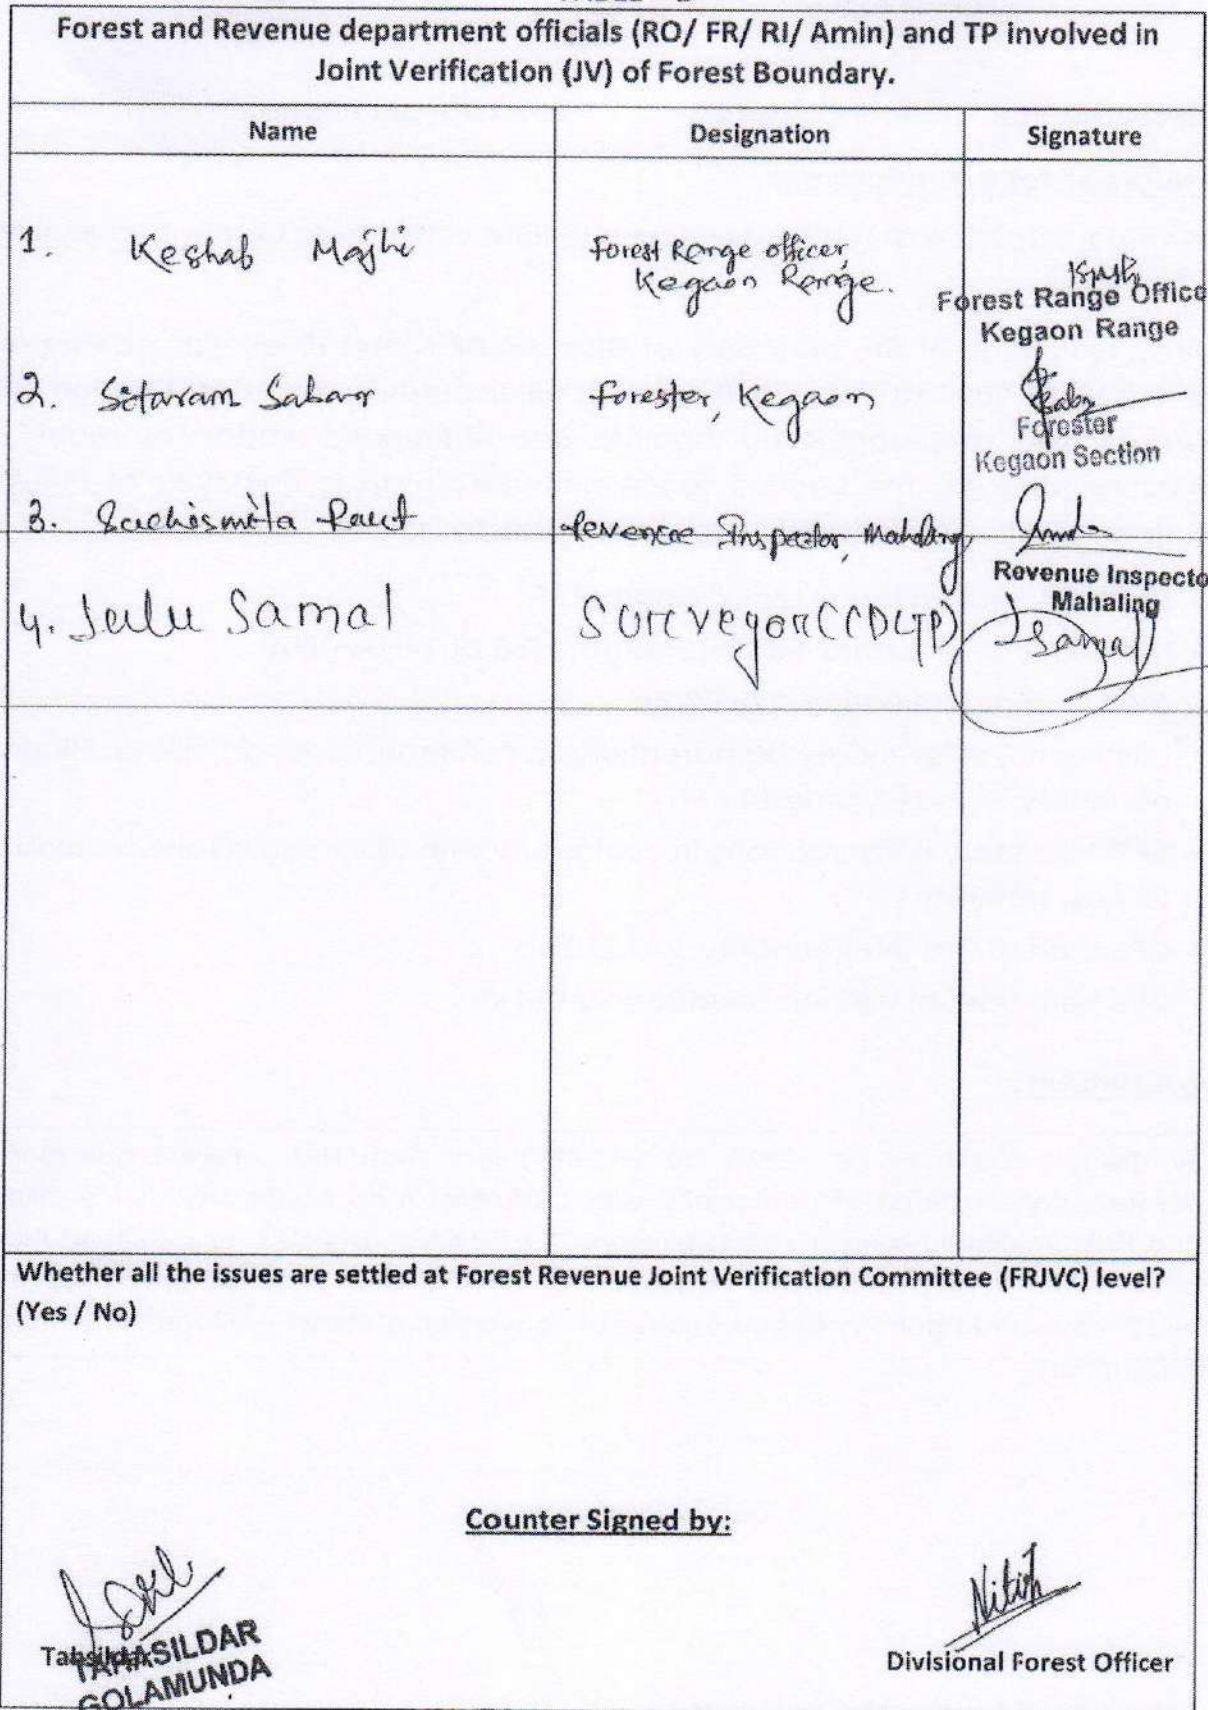 Forest and Revenue department officials (RO/ FR/ RI/ Amin) and TP involved in
Joint Verification (JV) of Forest Boundary.
Name Designation Signature
1. Keshab Majhi Forest Range officer,
Kegaon Range.
Forest Range Office
Kegaon Range
2. Sitaram Sabar Forester, Kegaon
Forester
Kegaon Section
3. Suchismita Raut Revenue Inspector, Mahaling
Revenue Inspecto
Mahaling
4. Julu Samal Surveyor (CDLTP) JSamal
Whether all the issues are settled at Forest Revenue Joint Verification Committee (FRJVC) level?
(Yes / No)
Counter Signed by:
Nitish
Tahsildar Divisional Forest Officer
TAHASILDAR
GOLAMUNDA